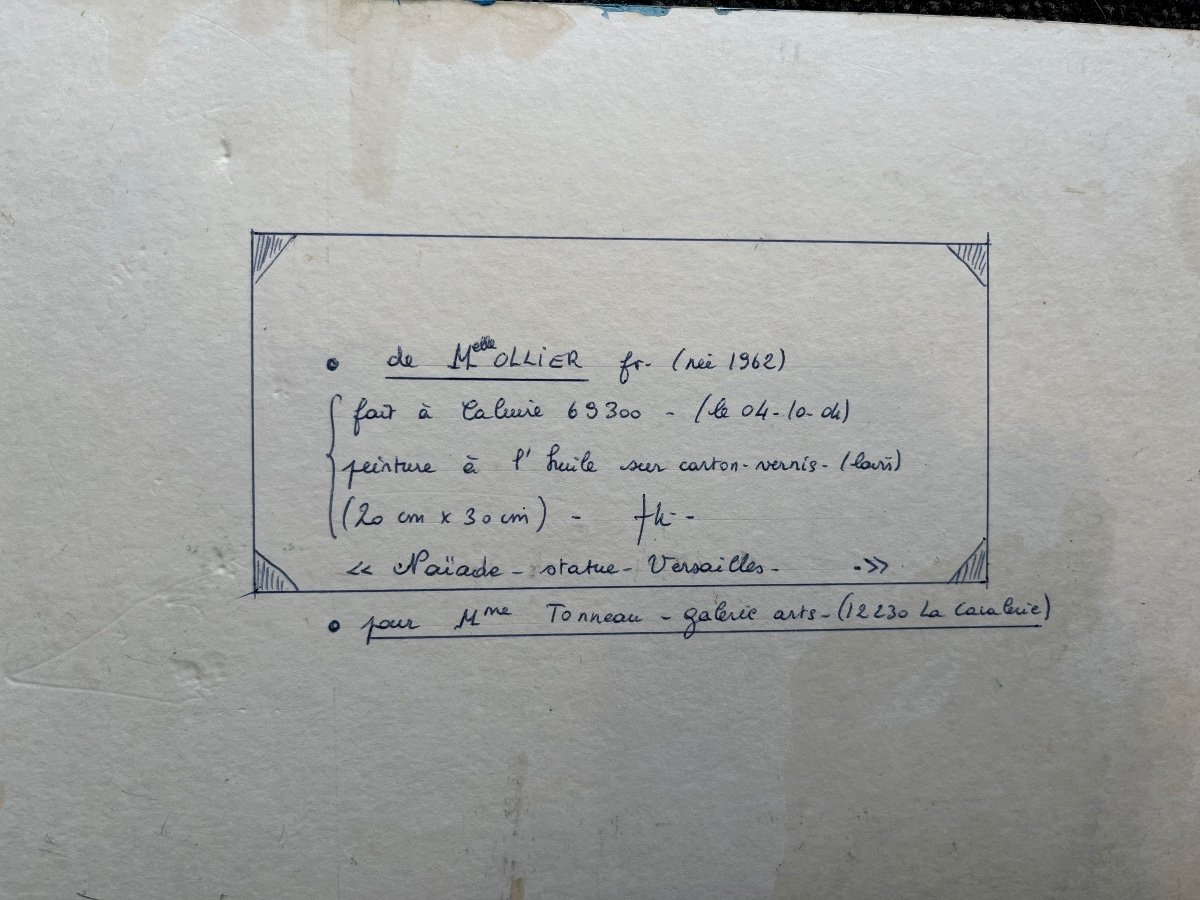 • de Melle OLLIER fr- (née 1962)
fait à Caluire 69300 - (le 04-10-04)
peinture à l'huile sur carton-vernis-
(20 cm x 30 cm) -
<< Naïade - statue - Versailles - . >>
• pour Mme Tonneau - galerie arts - (12230 La Cavalerie)